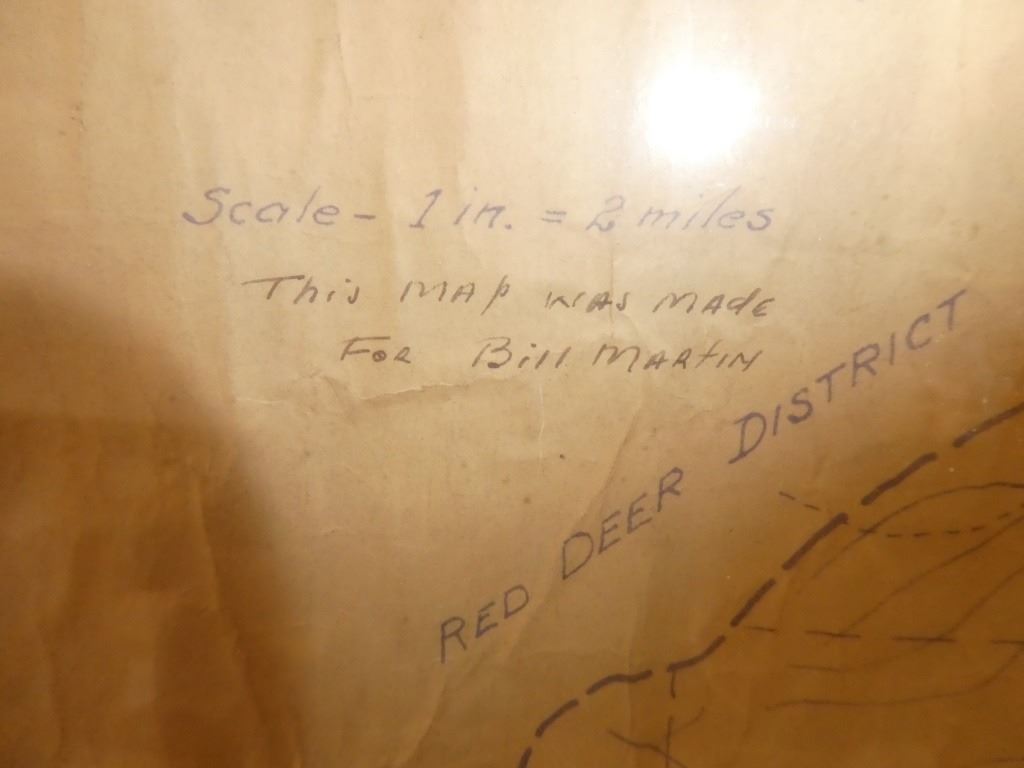 Scale - 1 in. = 2 miles
This MAp WAS MAde
FoR Bill MARtIN
RED DEER DISTRICT